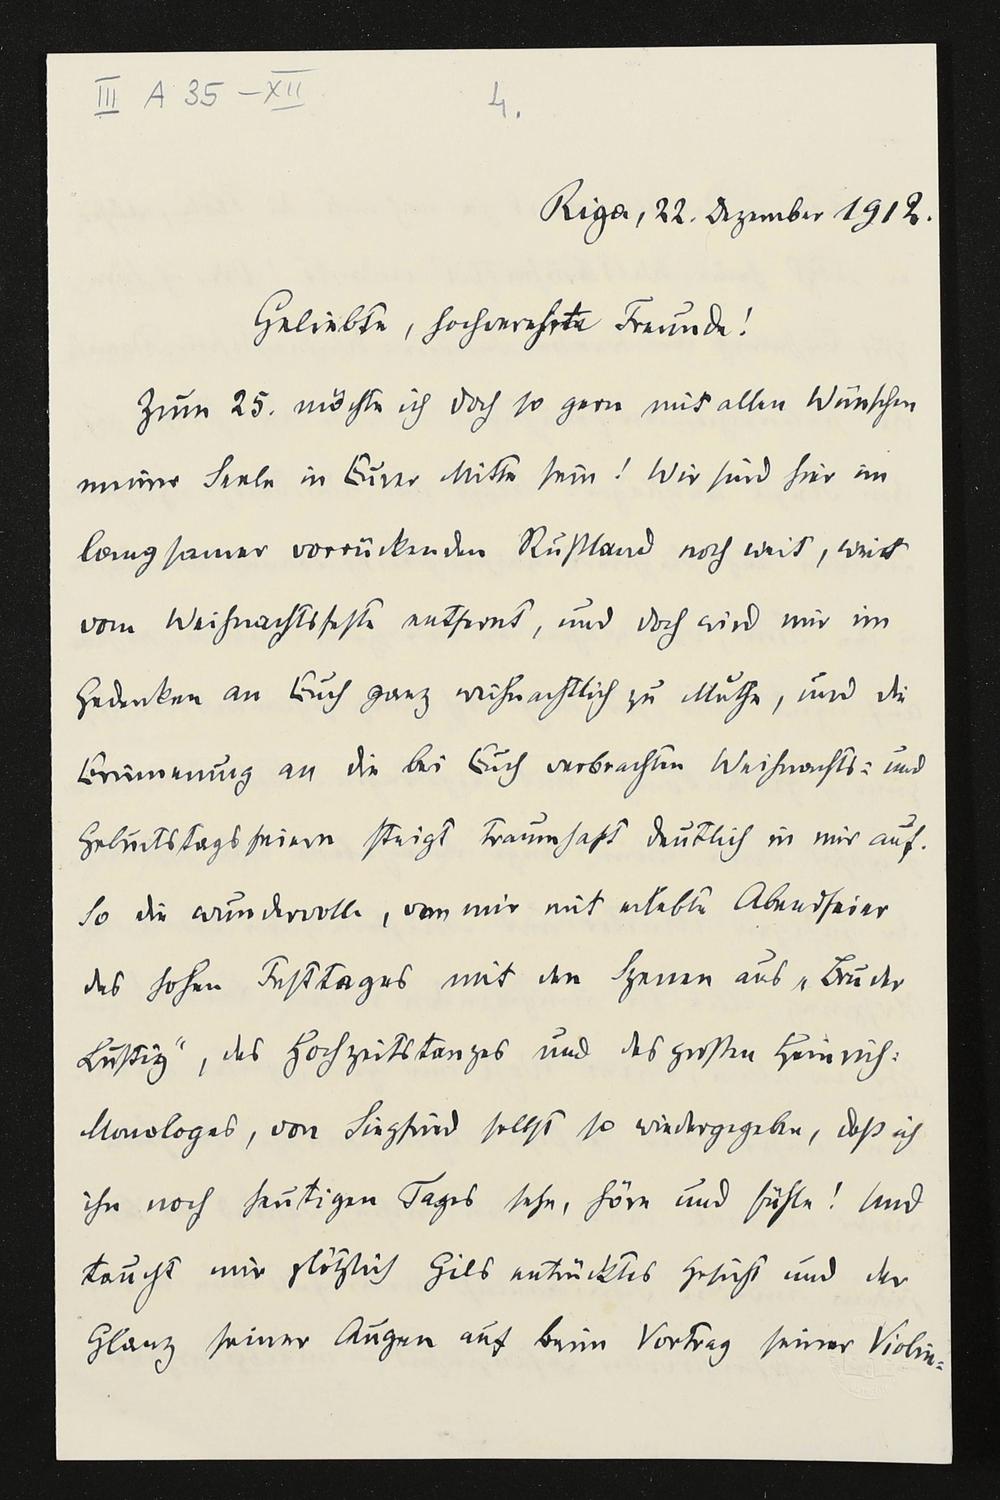 III A 35 – XII
4.
Riga, 22. Dezember 1912.
Geliebte, hochverehrte Freunde!
Zum 25. möchte ich doch so gern mit allen Wünschen
meiner Seele in Eurer Mitte sein! Wir sind hier im
langsamer vorrückenden Rußland noch weit, weit
vom Weihnachtsfeste entfernt, und doch wird mir im
Gedenken an Euch ganz weihnachtlich zu Muthe, und die
Erinnerung an die bei Euch verbrachten Weihnachts- und
Geburtstagsfeiern steigt traumhaft deutlich in mir auf.
So die wundervolle, von mir mit erlebte Abendfeier
des hohen Festtages mit den Szenen aus „Bruder
Lustig", des Hochzeitstanzes und des großen Heinrich-
Monologes, von Siegfried selbst so wiedergegeben, daß ich
ihn noch heutigen Tages sehe, höre und fühle! Und
taucht mir plötzlich Gils entrücktes Gesicht und der
Glanz seiner Augen auf beim Vortrag seiner Violin-